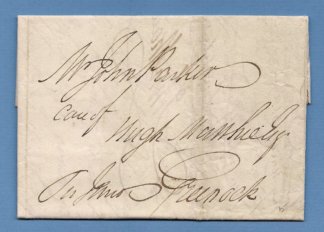 Mr John Parker
care of
Hugh Matthie Esqr
Greenock